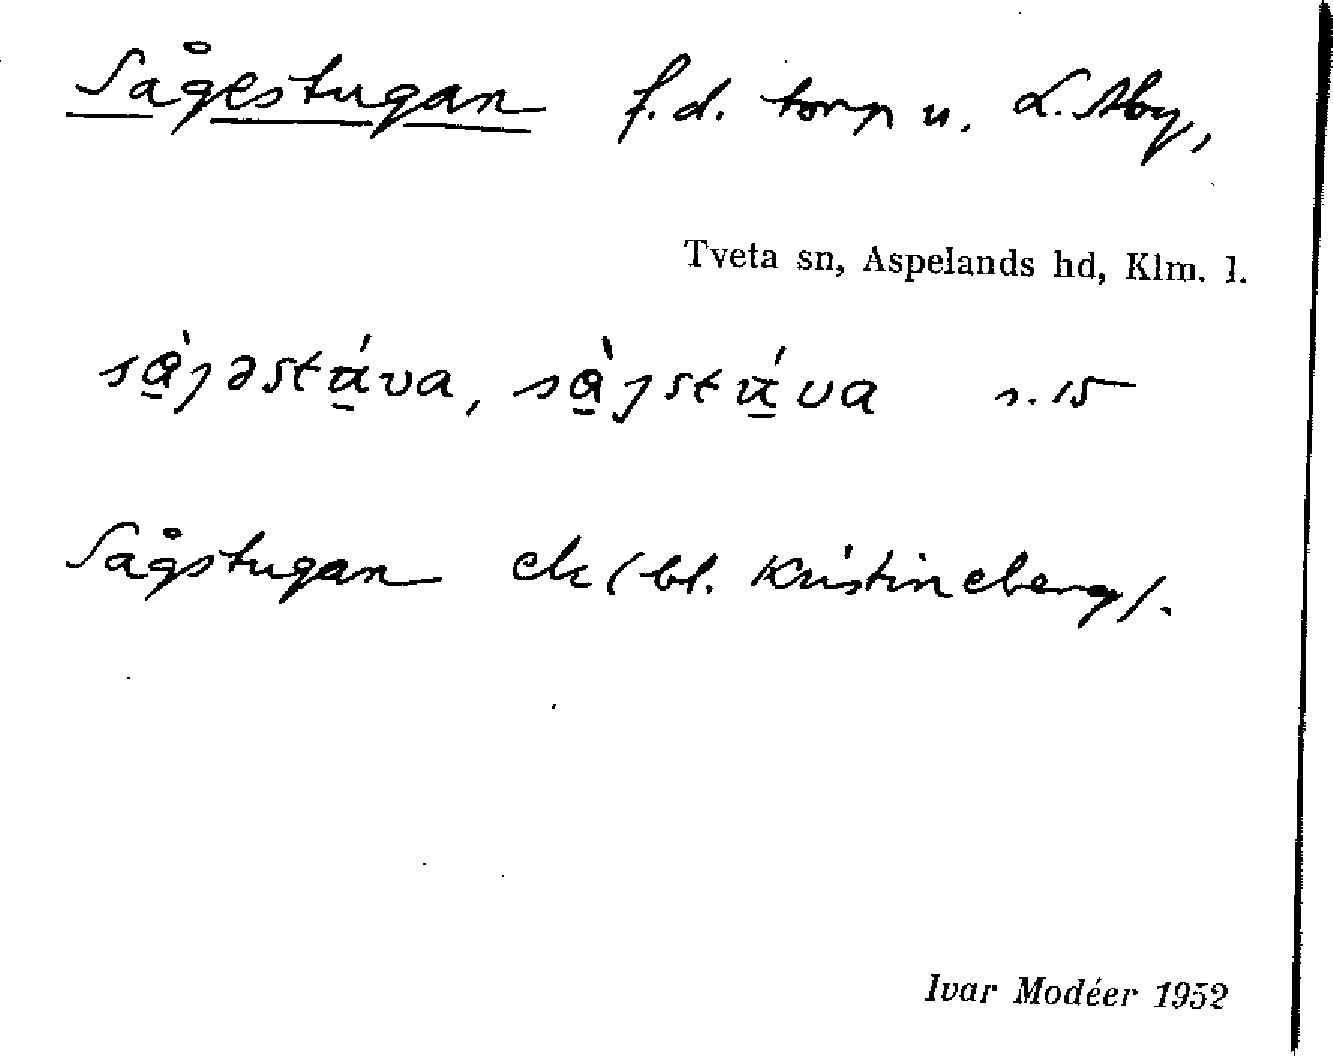 Sågestugan f.d. torp u. L. Åby,
Tveta sn, Aspelands hd, Klm. l.
s. 15
Sågstugan ek (bl. Kristineberg).
Ivar Modéer 1952